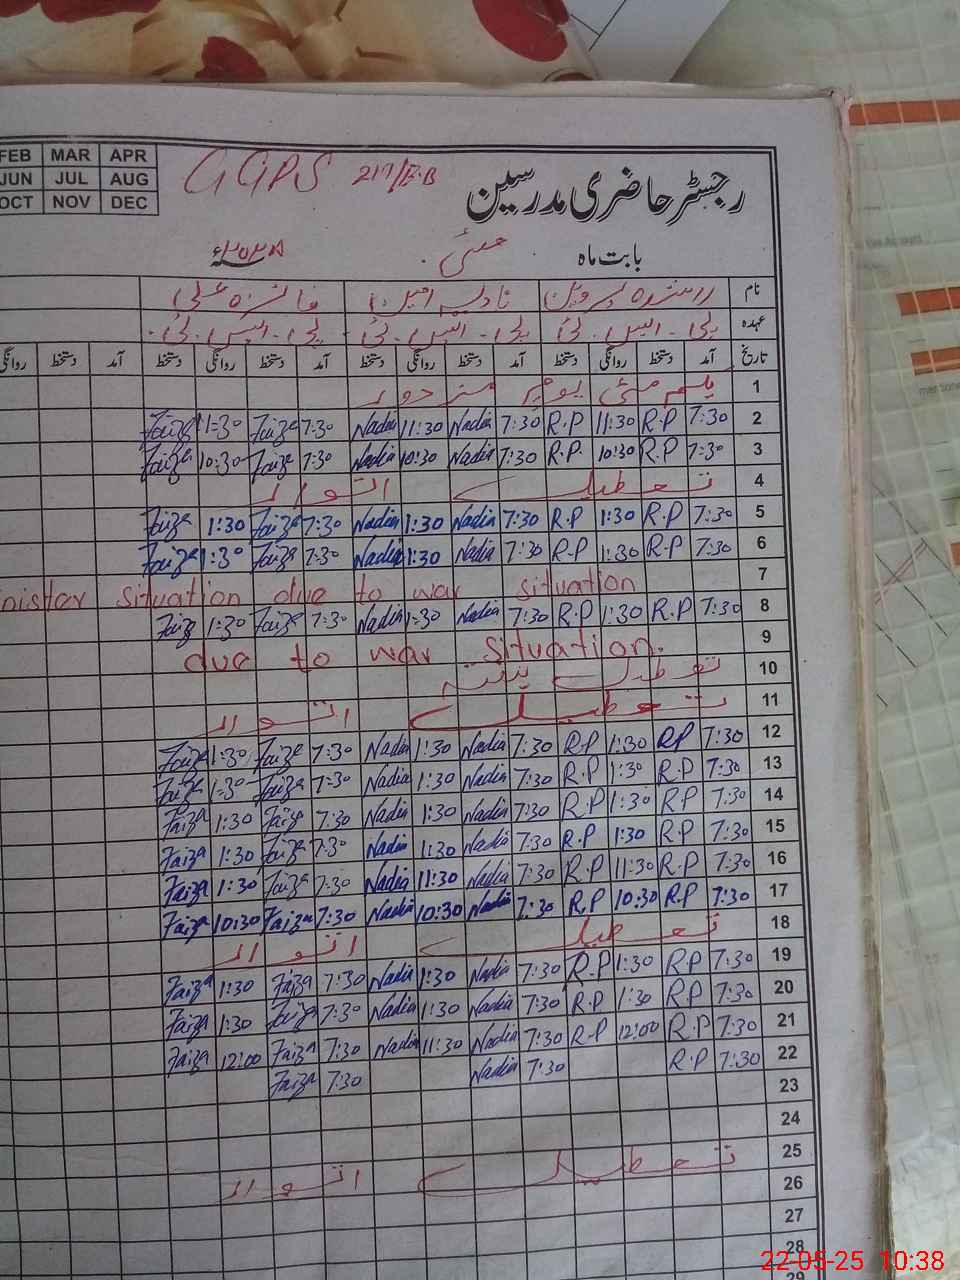 FEB MAR APR
JUN JUL AUG
OCT NOV DEC
GGPS 217/E.B
رجسٹر حاضری مدرسین
بابت ماہ مئی سنہ ۲۰۲۵ء
نام نادیہ امین فائزہ علی
عہدہ پی۔ایس۔ٹی پی۔ایس۔ٹی پی۔ایس۔ٹی
تاریخ آمد دستخط روانگی دستخط آمد دستخط روانگی دستخط آمد دستخط روانگی دستخط آمد دستخط روانگی
1 یکم مئی یوم مزدور
2 7:30 R.P 11:30 R.P 7:30 Nadia 11:30 Nadia 7:30 Faiza 11:30 Faiza
3 7:30 R.P 10:30 R.P. 7:30 Nadia 10:30 Nadia 7:30 Faiza 10:30 Faiza
4 تعطیل اتوار
5 7:30 R.P 1:30 R.P 7:30 Nadia 1:30 Nadia 7:30 Faiza 1:30 Faiza
6 7:30 R.P 1:30 R.P 7:30 Nadia 1:30 Nadia 7:30 Faiza 1:30 Faiza
7 situation due to war situation
8 7:30 R.P 1:30 R.P 7:30 Nadia 1:30 Nadia 7:30 Faiza 1:30 Faiza
9 due to war situation.
10
11 تعطیل اتوار
12 7:30 RP 1:30 R.P 7:30 Nadia 1:30 Nadia 7:30 Faiza 1:30 Faiza
13 7:30 R.P 1:30 R.P 7:30 Nadia 1:30 Nadia 7:30 Faiza 1:30 Faiza
14 7:30 R.P 1:30 R.P 7:30 Nadia 1:30 Nadia 7:30 Faiza 1:30 Faiza
15 7:30 R.P 1:30 R.P 7:30 Nadia 1:30 Nadia 7:30 Faiza 1:30 Faiza
16 7:30 R.P 11:30 R.P 7:30 Nadia 11:30 Nadia 7:30 Faiza 1:30 Faiza
17 7:30 R.P 10:30 R.P 7:30 Nadia 10:30 Nadia 7:30 Faiza 10:30 Faiza
18 تعطیل اتوار
19 7:30 R.P 1:30 R.P 7:30 Nadia 1:30 Nadia 7:30 Faiza 1:30 Faiza
20 7:30 R.P 1:30 R.P 7:30 Nadia 1:30 Nadia 7:30 Faiza 1:30 Faiza
21 7:30 R.P 12:00 R.P 7:30 Nadia 11:30 Nadia 7:30 Faiza 12:00 Faiza
22 7:30 R.P 7:30 Nadia 7:30 Faiza
23
24
25 تعطیل اتوار
26
27
28
29
22-05-25 10:38